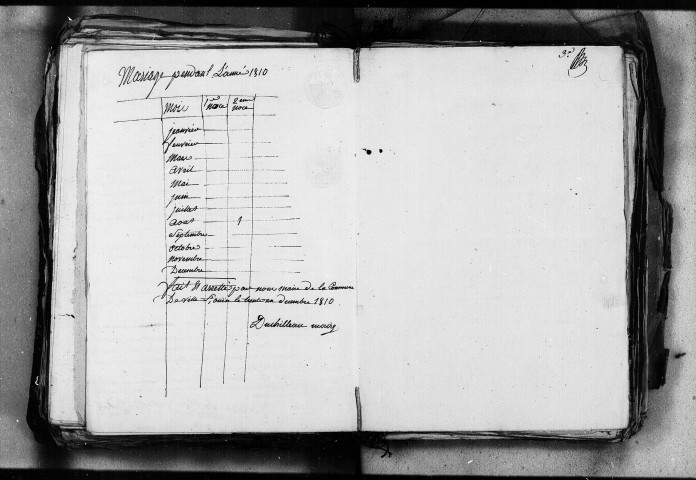 Mariage pendant L'année 1810
Mois 1ere noce 2eme noce
janvier
fevrier
Mars
avril
Mai
juin
juillet
aoat 1
Septembre
octobre
novembre
Decembre
fait & arretté par nous maire de la Commune
De ville le trente un decembre 1810
Duchilleau maire
3e